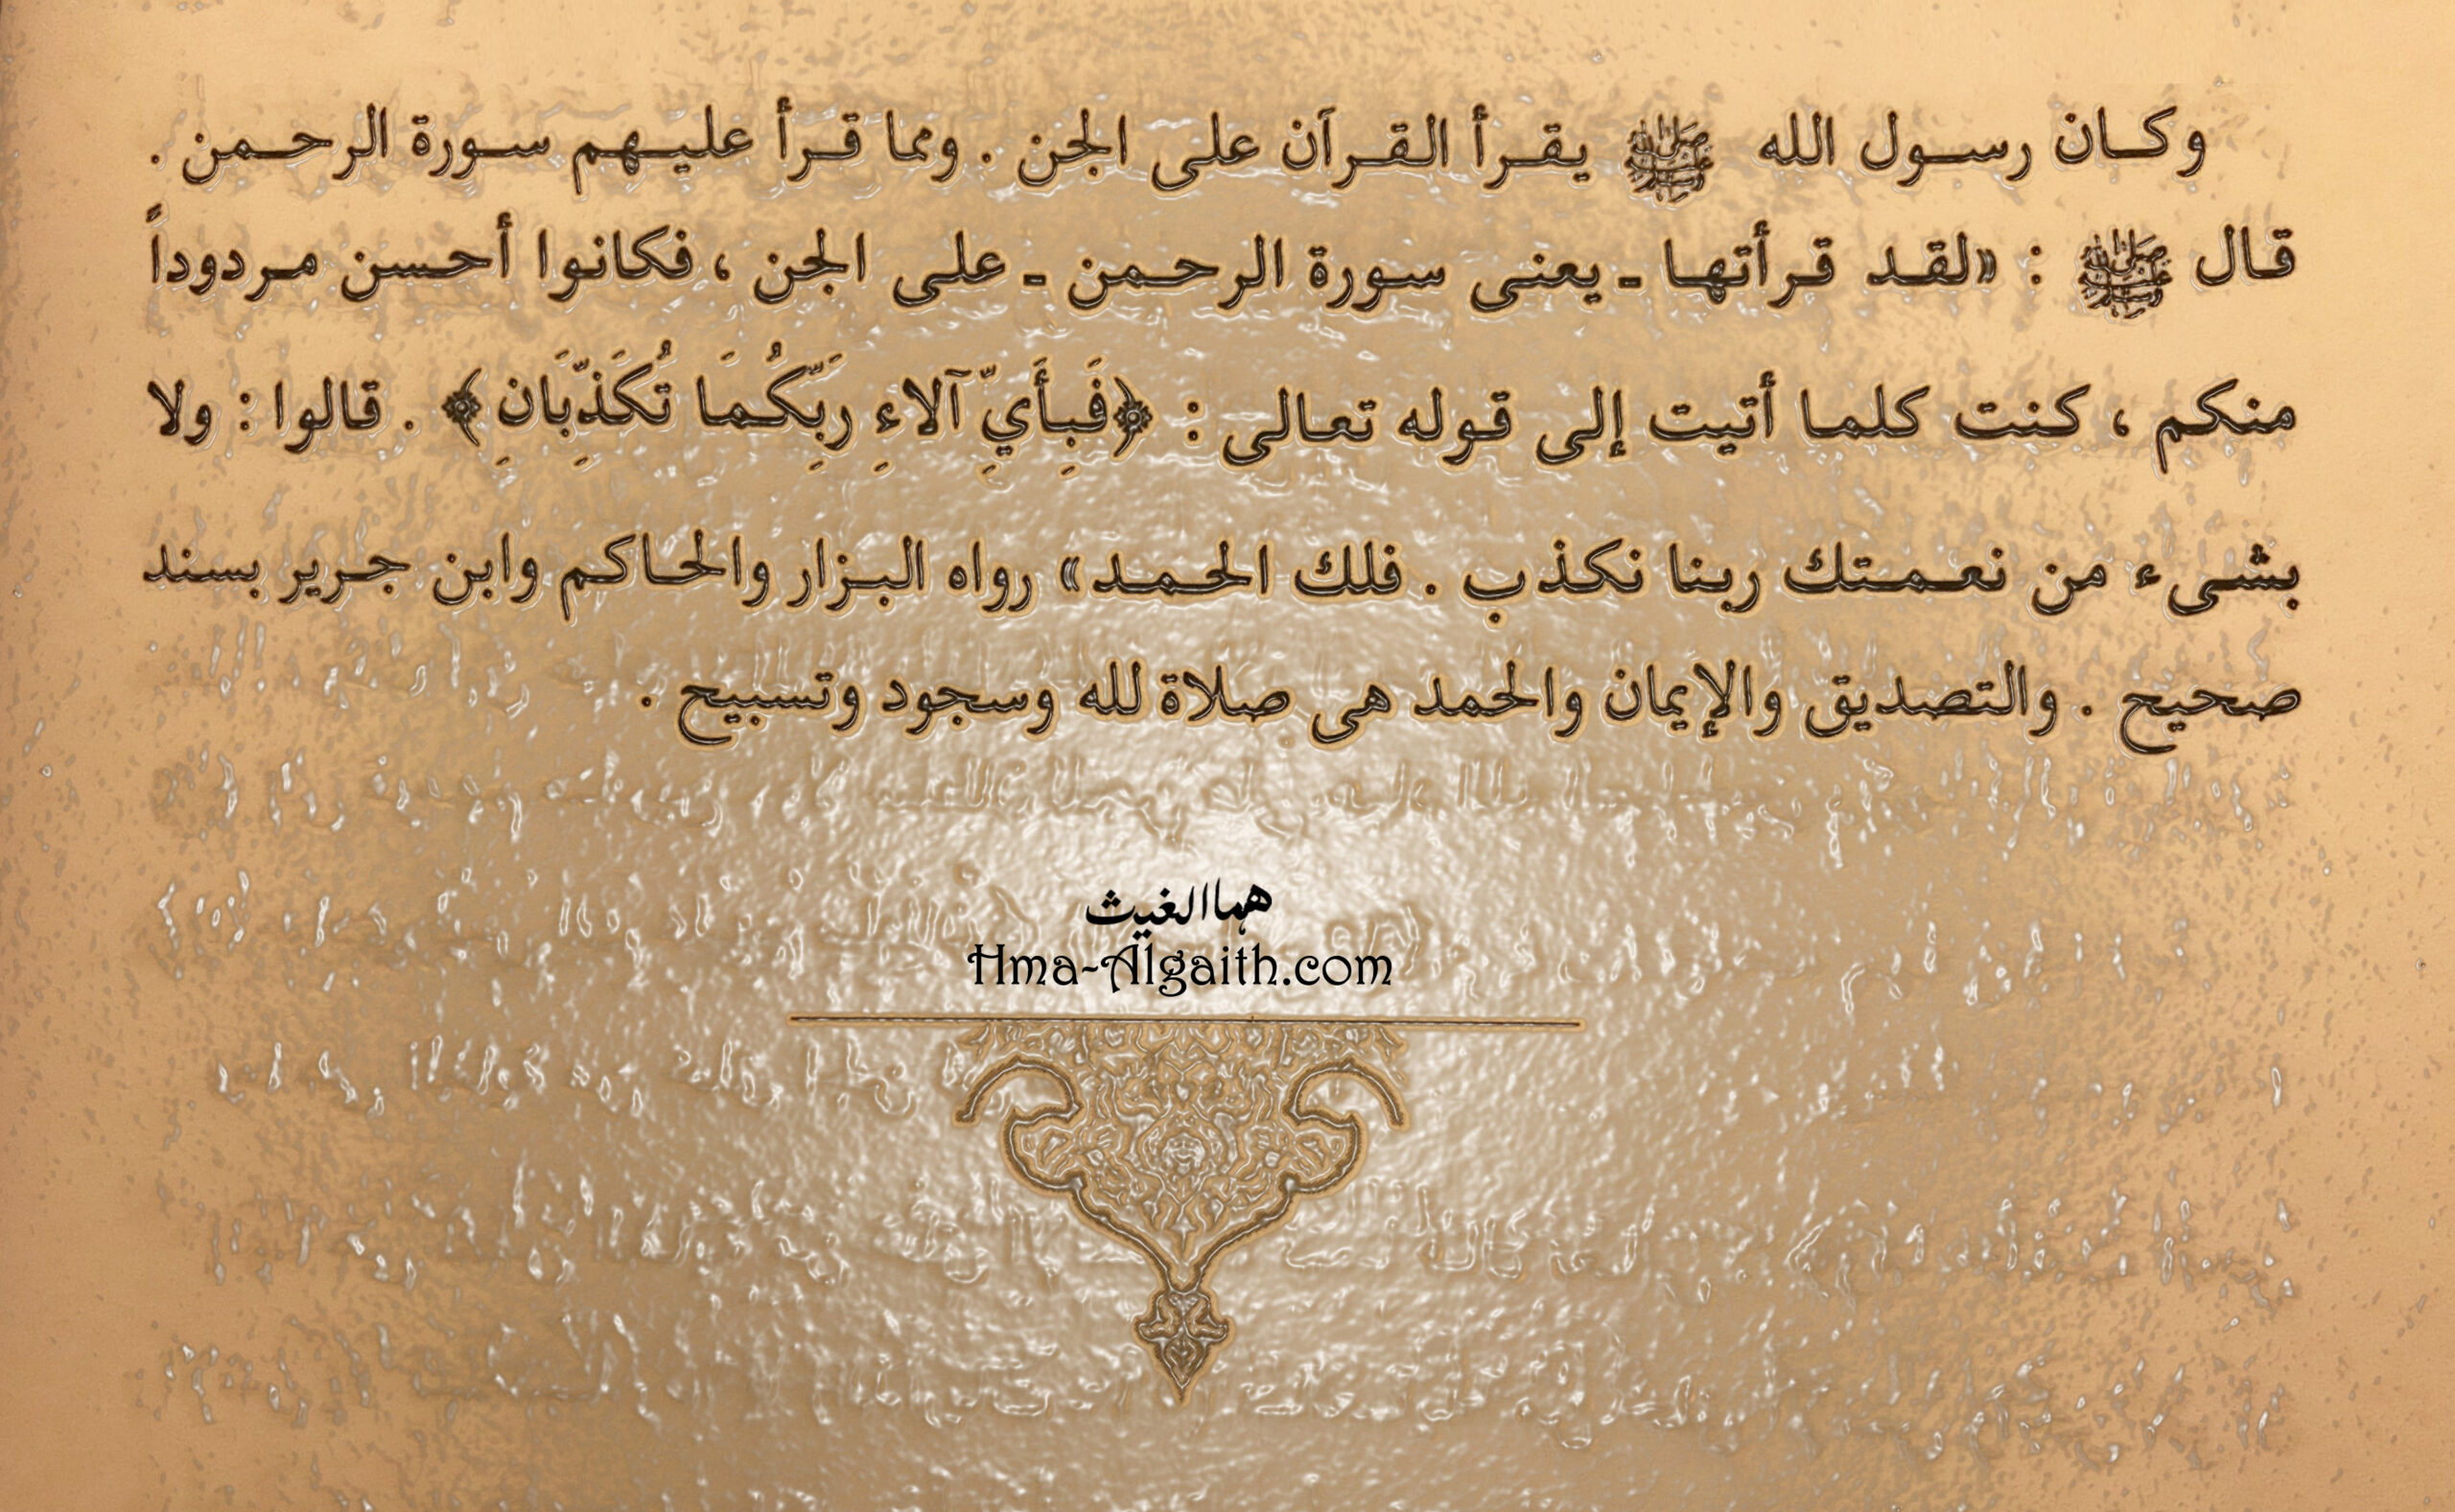 وكان رسول الله ﷺ يقرأ القرآن على الجن . ومما قرأ عليهم سورة الرحمن .
قال ﷺ : «لقد قرأتها ـ يعنى سورة الرحمن ـ على الجن ، فكانوا أحسن مردوداً
منكم ، كنت كلما أتيت إلى قوله تعالى : ﴿فَبِأَيِّ آلاءِ رَبِّكُمَا تُكَذِّبَانِ﴾ . قالوا : ولا
بشىء من نعمتك ربنا نكذب . فلك الحمد» رواه البزار والحاكم وابن جرير بسند
صحيح . والتصديق والإيمان والحمد هى صلاة لله وسجود وتسبيح .
هما الغيث
Hma-Algaith.com